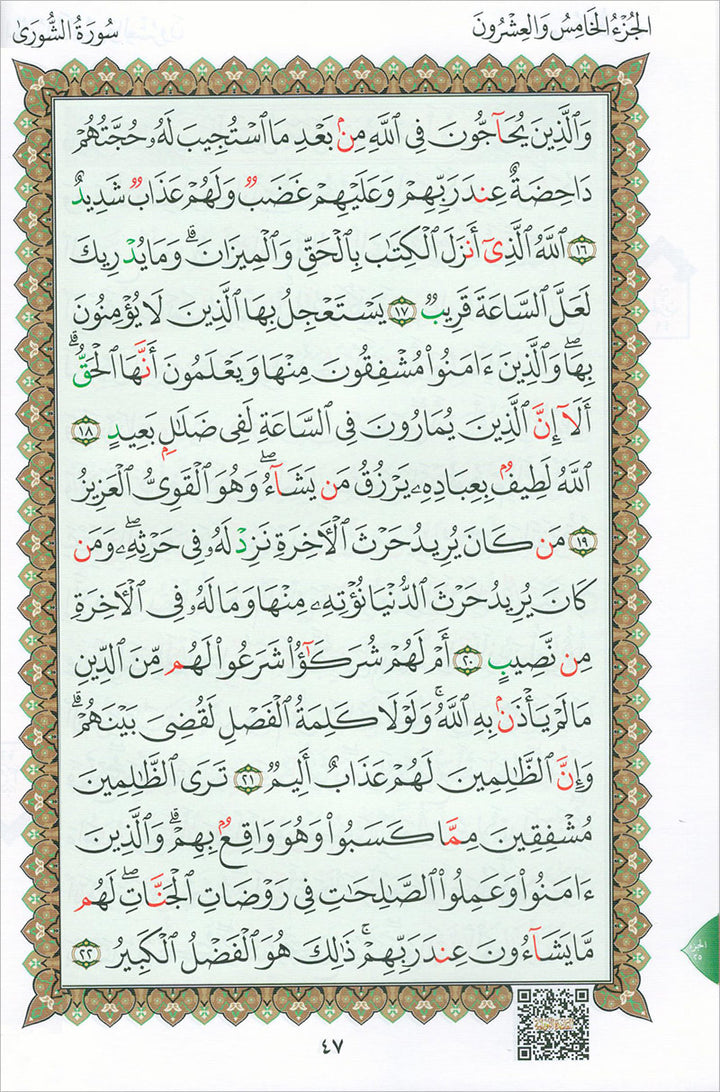 الجُزْءُ الخَامِسُ وَالعِشْرُونَ
سُورَةُ الشُّورَىٰ
وَٱلَّذِينَ يُحَآجُّونَ فِى ٱللَّهِ مِنۢ بَعْدِ مَا ٱسْتُجِيبَ لَهُۥ حُجَّتُهُمْ
دَاحِضَةٌ عِندَ رَبِّهِمْ وَعَلَيْهِمْ غَضَبٌ وَلَهُمْ عَذَابٌ شَدِيدٌ
١٦ ٱللَّهُ ٱلَّذِىٓ أَنزَلَ ٱلْكِتَـٰبَ بِٱلْحَقِّ وَٱلْمِيزَانَ ۗ وَمَا يُدْرِيكَ
لَعَلَّ ٱلسَّاعَةَ قَرِيبٌ ١٧ يَسْتَعْجِلُ بِهَا ٱلَّذِينَ لَا يُؤْمِنُونَ
بِهَا ۖ وَٱلَّذِينَ ءَامَنُوا۟ مُشْفِقُونَ مِنْهَا وَيَعْلَمُونَ أَنَّهَا ٱلْحَقُّ ۗ
أَلَآ إِنَّ ٱلَّذِينَ يُمَارُونَ فِى ٱلسَّاعَةِ لَفِى ضَلَـٰلٍۭ بَعِيدٍ ١٨
ٱللَّهُ لَطِيفٌۢ بِعِبَادِهِۦ يَرْزُقُ مَن يَشَآءُ ۖ وَهُوَ ٱلْقَوِىُّ ٱلْعَزِيزُ
١٩ مَن كَانَ يُرِيدُ حَرْثَ ٱلْـَٔاخِرَةِ نَزِدْ لَهُۥ فِى حَرْثِهِۦ ۖ وَمَن
كَانَ يُرِيدُ حَرْثَ ٱلدُّنْيَا نُؤْتِهِۦ مِنْهَا وَمَا لَهُۥ فِى ٱلْـَٔاخِرَةِ
مِن نَّصِيبٍ ٢٠ أَمْ لَهُمْ شُرَكَـٰٓؤُا۟ شَرَعُوا۟ لَهُم مِّنَ ٱلدِّينِ
مَا لَمْ يَأْذَنۢ بِهِ ٱللَّهُ ۚ وَلَوْلَا كَلِمَةُ ٱلْفَصْلِ لَقُضِىَ بَيْنَهُمْ ۗ
وَإِنَّ ٱلظَّـٰلِمِينَ لَهُمْ عَذَابٌ أَلِيمٌ ٢١ تَرَى ٱلظَّـٰلِمِينَ
مُشْفِقِينَ مِمَّا كَسَبُوا۟ وَهُوَ وَاقِعٌۢ بِهِمْ ۗ وَٱلَّذِينَ
ءَامَنُوا۟ وَعَمِلُوا۟ ٱلصَّـٰلِحَـٰتِ فِى رَوْضَاتِ ٱلْجَنَّاتِ ۖ لَهُم
مَّا يَشَآءُونَ عِندَ رَبِّهِمْ ۚ ذَٰلِكَ هُوَ ٱلْفَضْلُ ٱلْكَبِيرُ ٢٢
الجزء
٢٥
٤٧